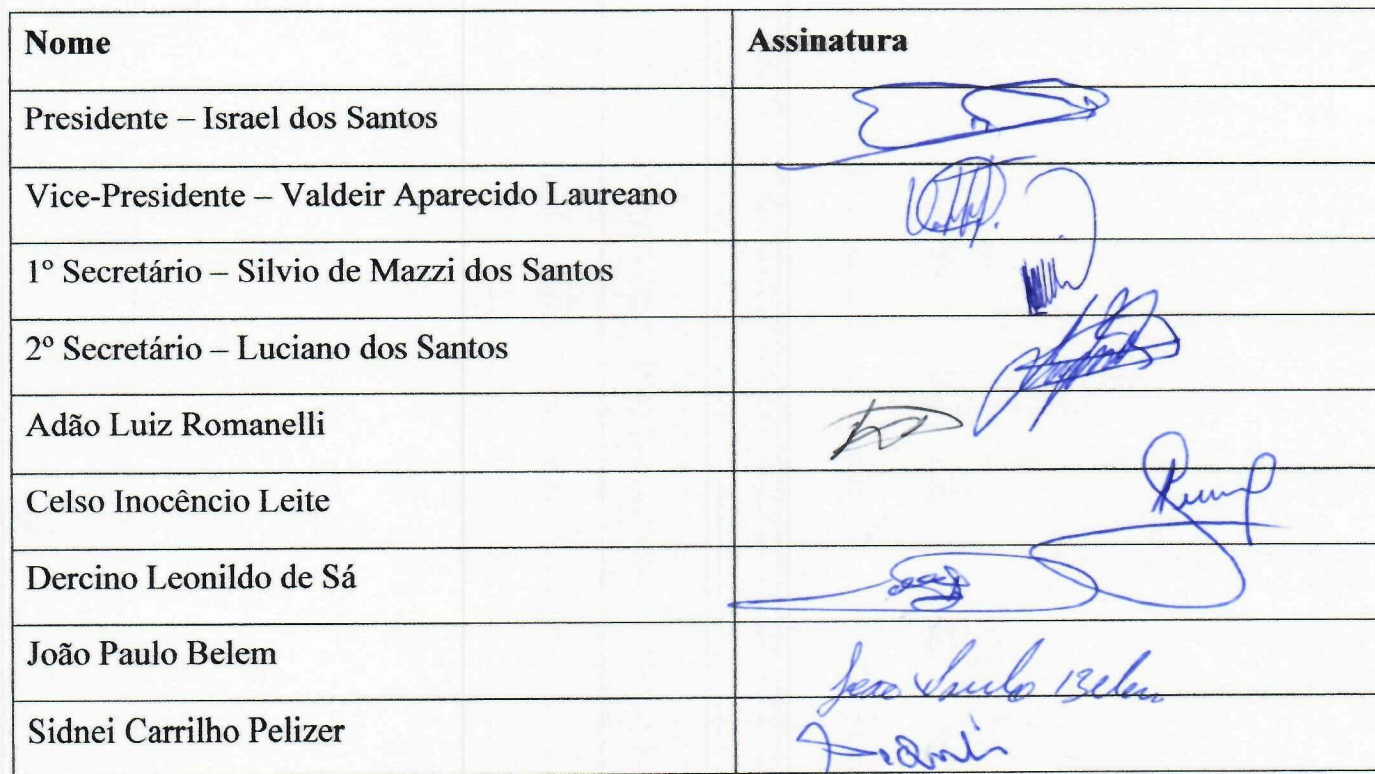 Nome Assinatura
Presidente – Israel dos Santos
Vice-Presidente – Valdeir Aparecido Laureano
1º Secretário – Silvio de Mazzi dos Santos
2º Secretário – Luciano dos Santos
Adão Luiz Romanelli
Celso Inocêncio Leite
Dercino Leonildo de Sá
João Paulo Belem João Paulo Belem
Sidnei Carrilho Pelizer